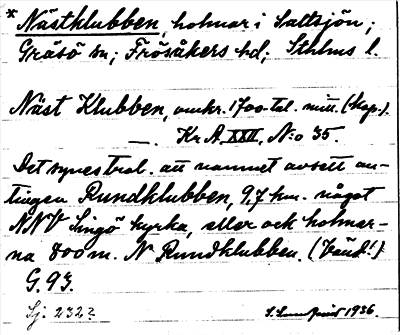 * Nästklubben, holmar i Saltsjön;
Gräsö sn; Frösåkers hd, Sthlms l.
Näst Klubben, omkr. 1700-tal. mitt. (kap.).
—. Kr A. XXII, N:o 35.
Det synes trol. att namnet avsett an-
tingen Rundklubben, 9,7 km. något
NNV Singö kyrka, eller ock holmar-
na 800 m. N Rundklubben. (
G. 93.
Sj. 232?
1936.